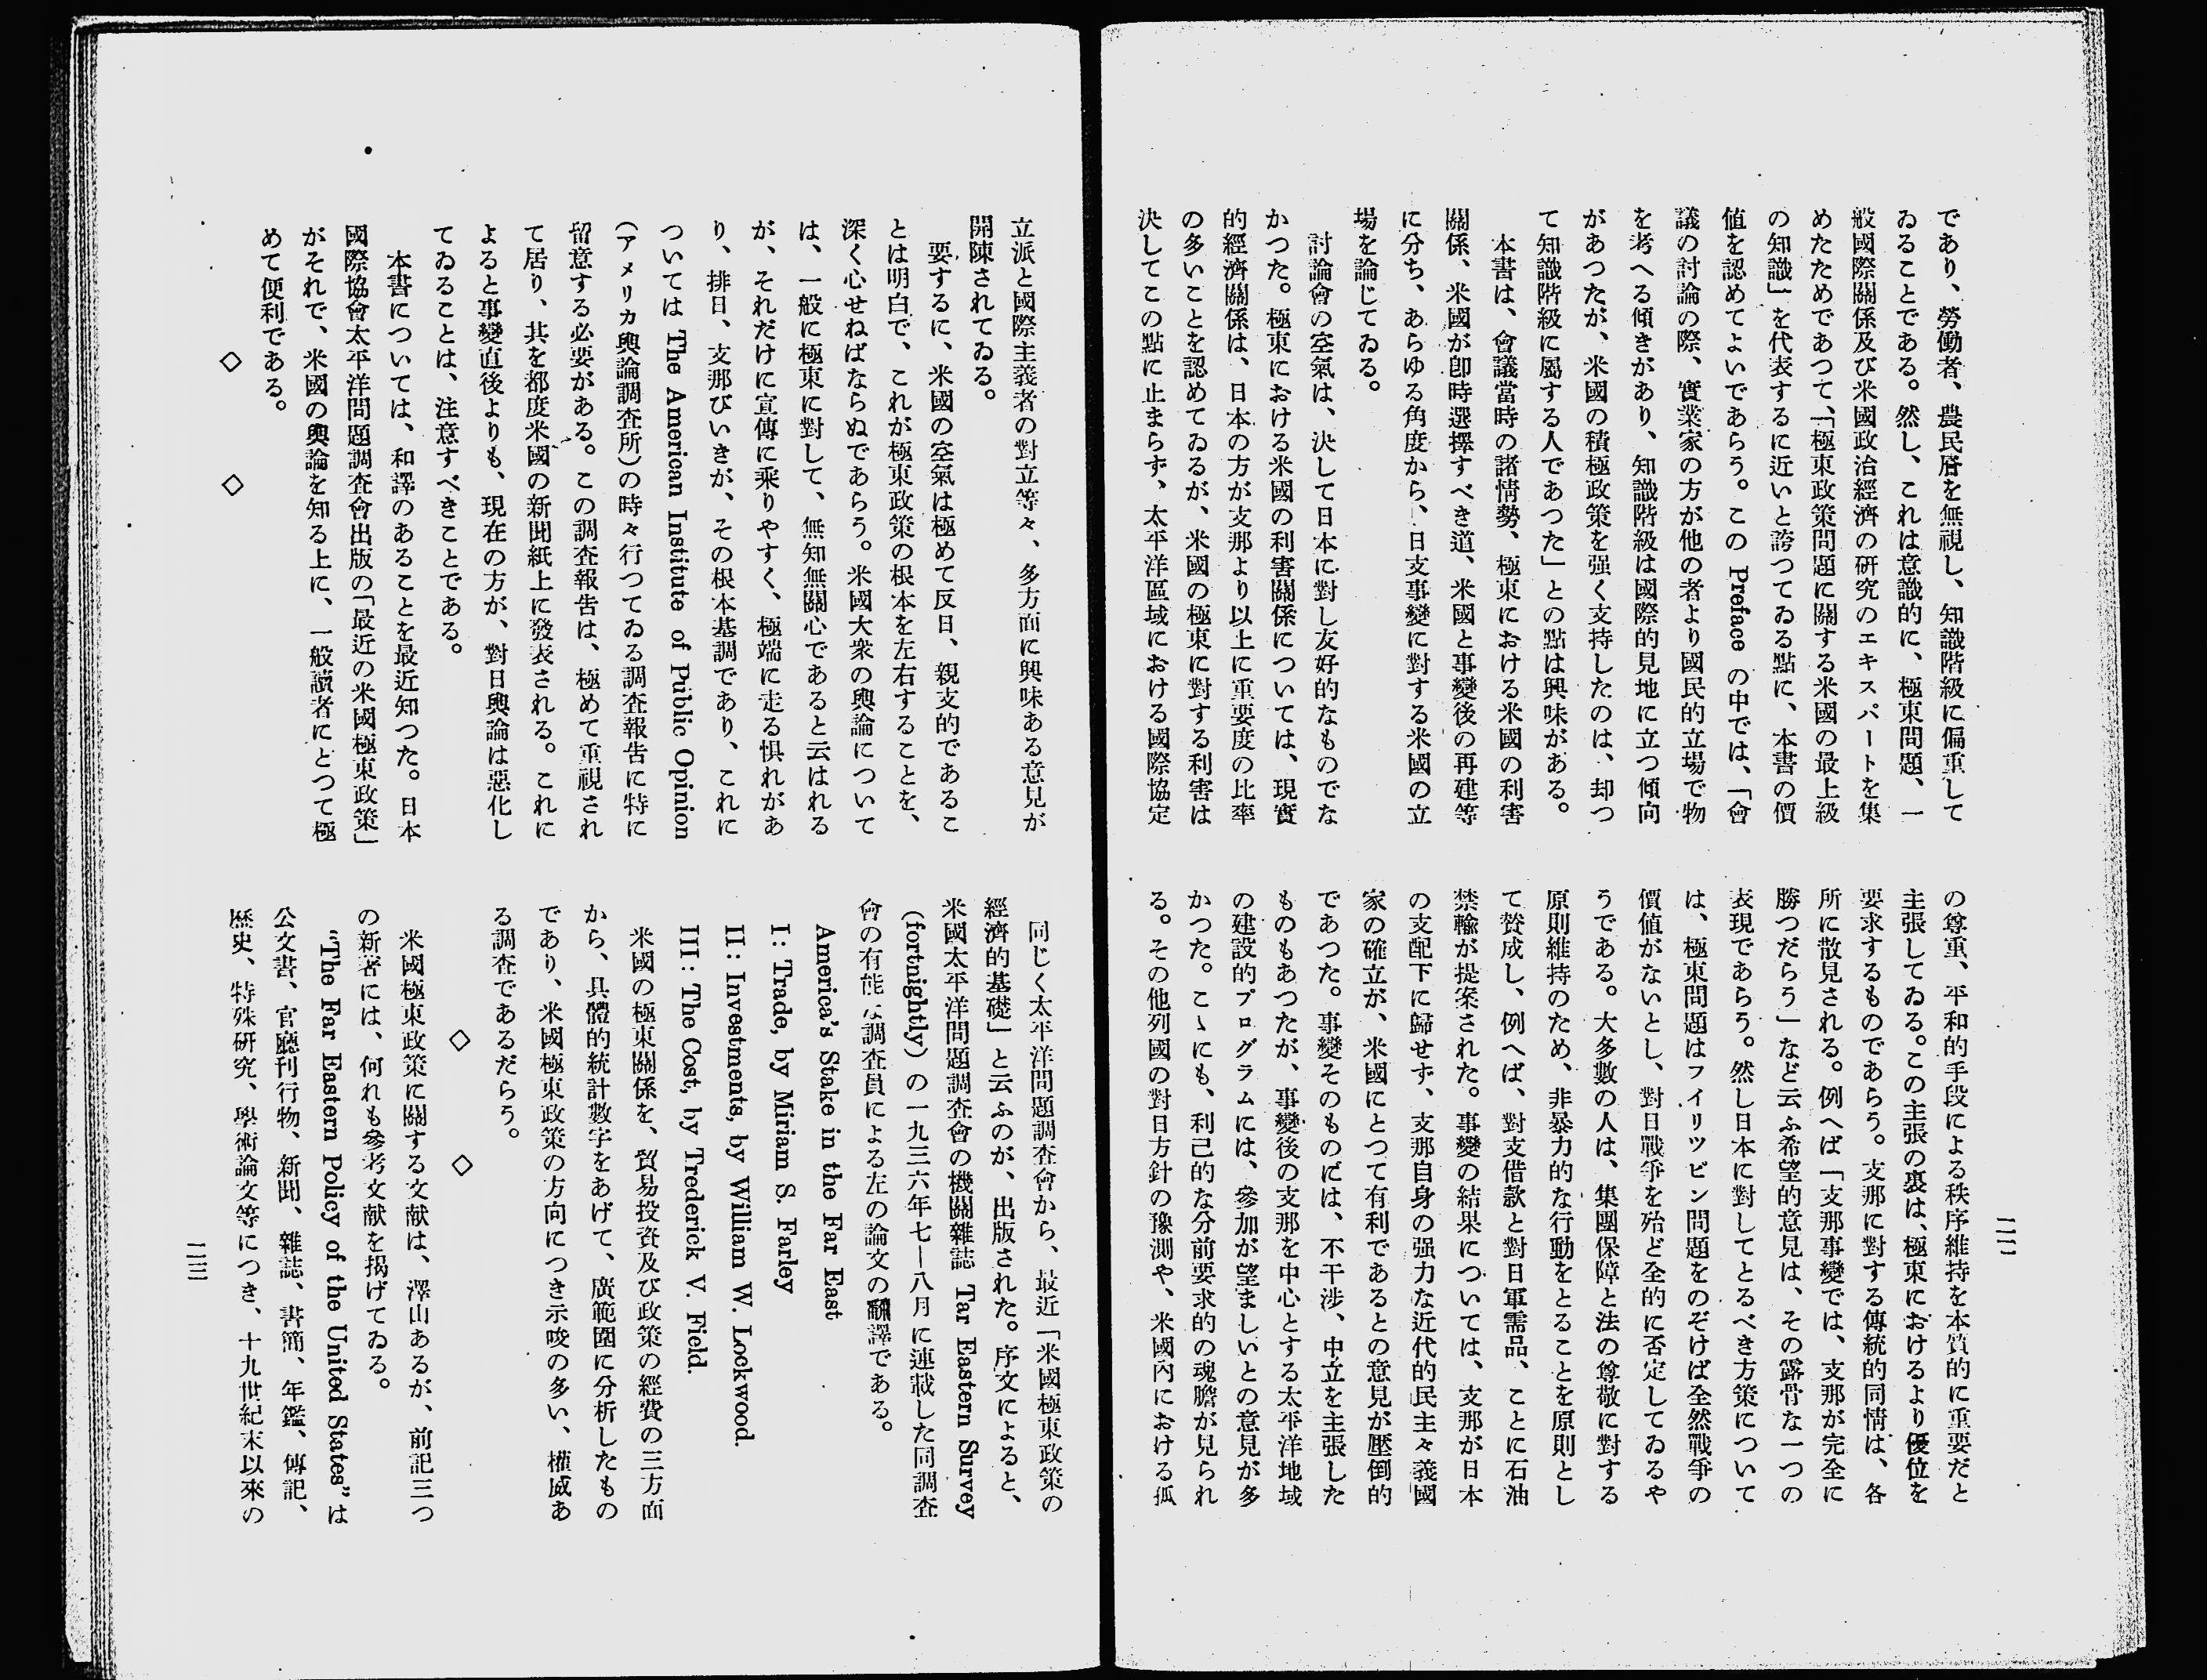 であり、勞働者、農民層を無視し、知識階級に偏重して
ゐることである。然し、これは意識的に、極東問題、一
般國際關係及び米國政治經濟の研究のエキスパートを集
めたためであつて、「極東政策問題に關する米國の最上級
の知識」を代表するに近いと誇つてゐる點に、本書の價
値を認めてよいであらう。この Preface の中では、「會
議の討論の際、實業家の方が他の者より國民的立場で物
を考へる傾きがあり、知識階級は國際的見地に立つ傾向
があつたが、米國の積極政策を强く支持したのは、却つ
て知識階級に屬する人であつた」との點は興味がある。
本書は、會議當時の諸情勢、極東における米國の利害
關係、米國が卽時選擇すべき道、米國と事變後の再建等
に分ち、あらゆる角度から、日支事變に對する米國の立
場を論じてゐる。
討論會の空氣は、決して日本に對し友好的なものでな
かつた。極東における米國の利害關係については、現實
的經濟關係は、日本の方が支那より以上に重要度の比率
の多いことを認めてゐるが、米國の極東に對する利害は
決してこの點に止まらず、太平洋區域における國際協定
の尊重、平和的手段による秩序維持を本質的に重要だと
主張してゐる。この主張の裏は、極東におけるより優位を
要求するものであらう。支那に對する傳統的同情は、各
所に散見される。例へば「支那事變では、支那が完全に
勝つだらう」など云ふ希望的意見は、その露骨な一つの
表現であらう。然し日本に對してとるべき方策について
は、極東問題はフイリツピン問題をのぞけば全然戰爭の
價値がないとし、對日戰爭を殆ど全的に否定してゐるや
うである。大多數の人は、集團保障と法の尊敬に對する
原則維持のため、非暴力的な行動をとることを原則とし
て贊成し、例へば、對支借款と對日軍需品、ことに石油
禁輸が提案された。事變の結果については、支那が日本
の支配下に歸せず、支那自身の强力な近代的民主々義國
家の確立が、米國にとつて有利であるとの意見が壓倒的
であつた。事變そのものには、不干涉、中立を主張した
ものもあつたが、事變後の支那を中心とする太平洋地域
の建設的プログラムには、參加が望ましいとの意見が多
かつた。こゝにも、利己的な分前要求的の魂膽が見られ
る。その他列國の對日方針の豫測や、米國內における孤
二二
立派と國際主義者の對立等々、多方面に興味ある意見が
開陳されてゐる。
要するに、米國の空氣は極めて反日、親支的であるこ
とは明白で、これが極東政策の根本を左右することを、
深く心せねばならぬであらう。米國大衆の輿論について
は、一般に極東に對して、無知無關心であると云はれる
が、それだけに宣傳に乘りやすく、極端に走る惧れがあ
り、排日、支那びいきが、その根本基調であり、これに
ついては The American Institute of Public Opinion
(アメリカ輿論調査所)の時々行つてゐる調査報吿に特に
留意する必要がある。この調査報吿は、極めて重視され
て居り、其を都度米國の新聞紙上に發表される。これに
よると事變直後よりも、現在の方が、對日輿論は惡化し
てゐることは、注意すべきことである。
本書については、和譯のあることを最近知つた。日本
國際協會太平洋問題調査會出版の「最近の米國極東政策」
がそれで、米國の輿論を知る上に、一般讀者にとつて極
めて便利である。
◇　◇
同じく太平洋問題調査會から、最近「米國極東政策の
經濟的基礎」と云ふのが、出版された。序文によると、
米國太平洋問題調査會の機關雜誌 Tar Eastern Survey
(fortnightly) の一九三六年七―八月に連載した同調査
會の有能な調査員による左の論文の飜譯である。
America's Stake in the Far East
I: Trade, by Miriam S. Farley
II: Investments, by William W. Lockwood.
III: The Cost, by Trederick V. Field.
米國の極東關係を、貿易投資及び政策の經費の三方面
から、具體的統計數字をあげて、廣範圍に分析したもの
であり、米國極東政策の方向につき示唆の多い、權威あ
る調査であるだらう。
◇　◇
米國極東政策に關する文献は、澤山あるが、前記三つ
の新著には、何れも參考文献を揭げてゐる。
“The Far Eastern Policy of the United States” は
公文書、官廳刊行物、新聞、雜誌、書簡、年鑑、傳記、
歷史、特殊硏究、學術論文等につき、十九世紀末以來の
二三